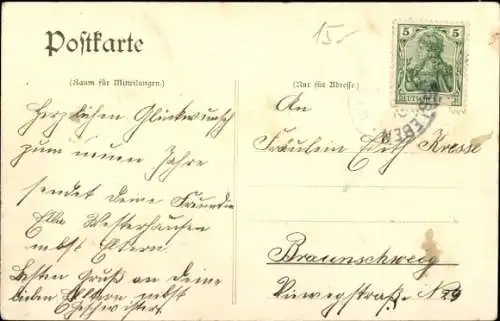 15.-
Postkarte
(Raum für Mitteilungen.)
(Nur für Adresse.)
5 5
DEUTSCHES
Herzlichen Glückwunsch
zum neuen Jahre
sendet deine Freundin
Ella Westerhausen
nebst Eltern.
Besten Gruß an deine
lieben Eltern nebst
Geschwister.
An
Fräulein Edith Kresse
Braunschweig
Viewegstraße № 29